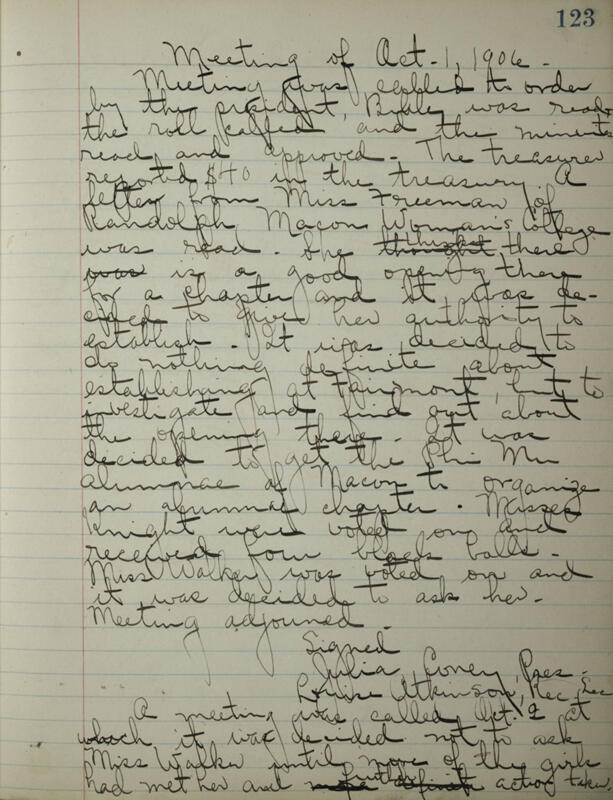 123
Meeting of Oct. 1, 1906.
Meeting was called to order
by the president, Bible was read,
the roll called and the minutes
read and approved. The treasurer
reported $40 in the treasury. A
letter from Miss Freeman of
Randolph Macon Woman's College
was read. She thought thinks there
was is a good opening there
for a chapter and it was de-
cided to give her authority to
establish. It was decided to
do nothing definite about
establishing at Fairmont, but to
investigate and find out about
the opening there. It was
decided to get the Phi Mu
alumnae of Macon to organize
an alumnae chapter. Misses
Knight were voted on and
received four black balls.
Miss Walker was voted on and
it was decided to ask her.
Meeting adjouned.
Signed
Julia Coney, Pres.
Louise Atkinson, Rec. Sec
A meeting was called Oct. 2 at
which it was decided not to ask
Miss Walker until more of the girls
had met her and further action taken,